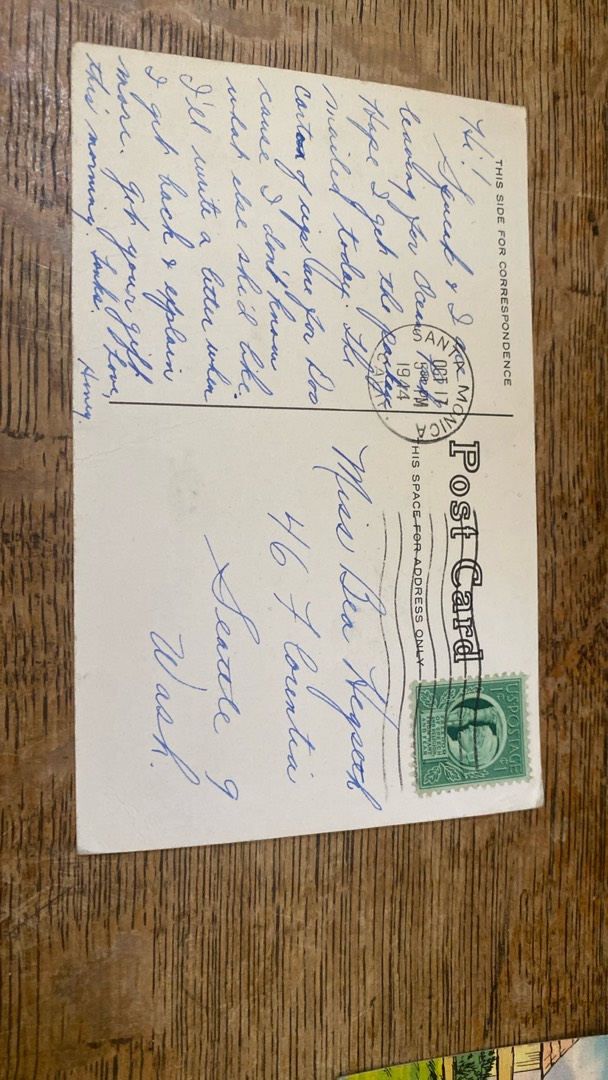 THIS SIDE FOR CORRESPONDENCE
Hi!
& I are
leaving for
Hope I get the package
mailed today. The
carton of cigs are for Doc
cause I don't know
what else she'd like.
I'll write a letter when
I get back & explain
more. Got your gift
this morning. Thanks. Love,
Honey.
Post Card
THIS SPACE FOR ADDRESS ONLY
SANTA MONICA
OCT 17
PM
1944
CALIF.
U.S. POSTAGE
1¢
FREEDOM
OF SPEECH
AND RELIGION
FROM WANT
AND FEAR
Miss Bea
46 Flountin
Seattle 9
Wash.